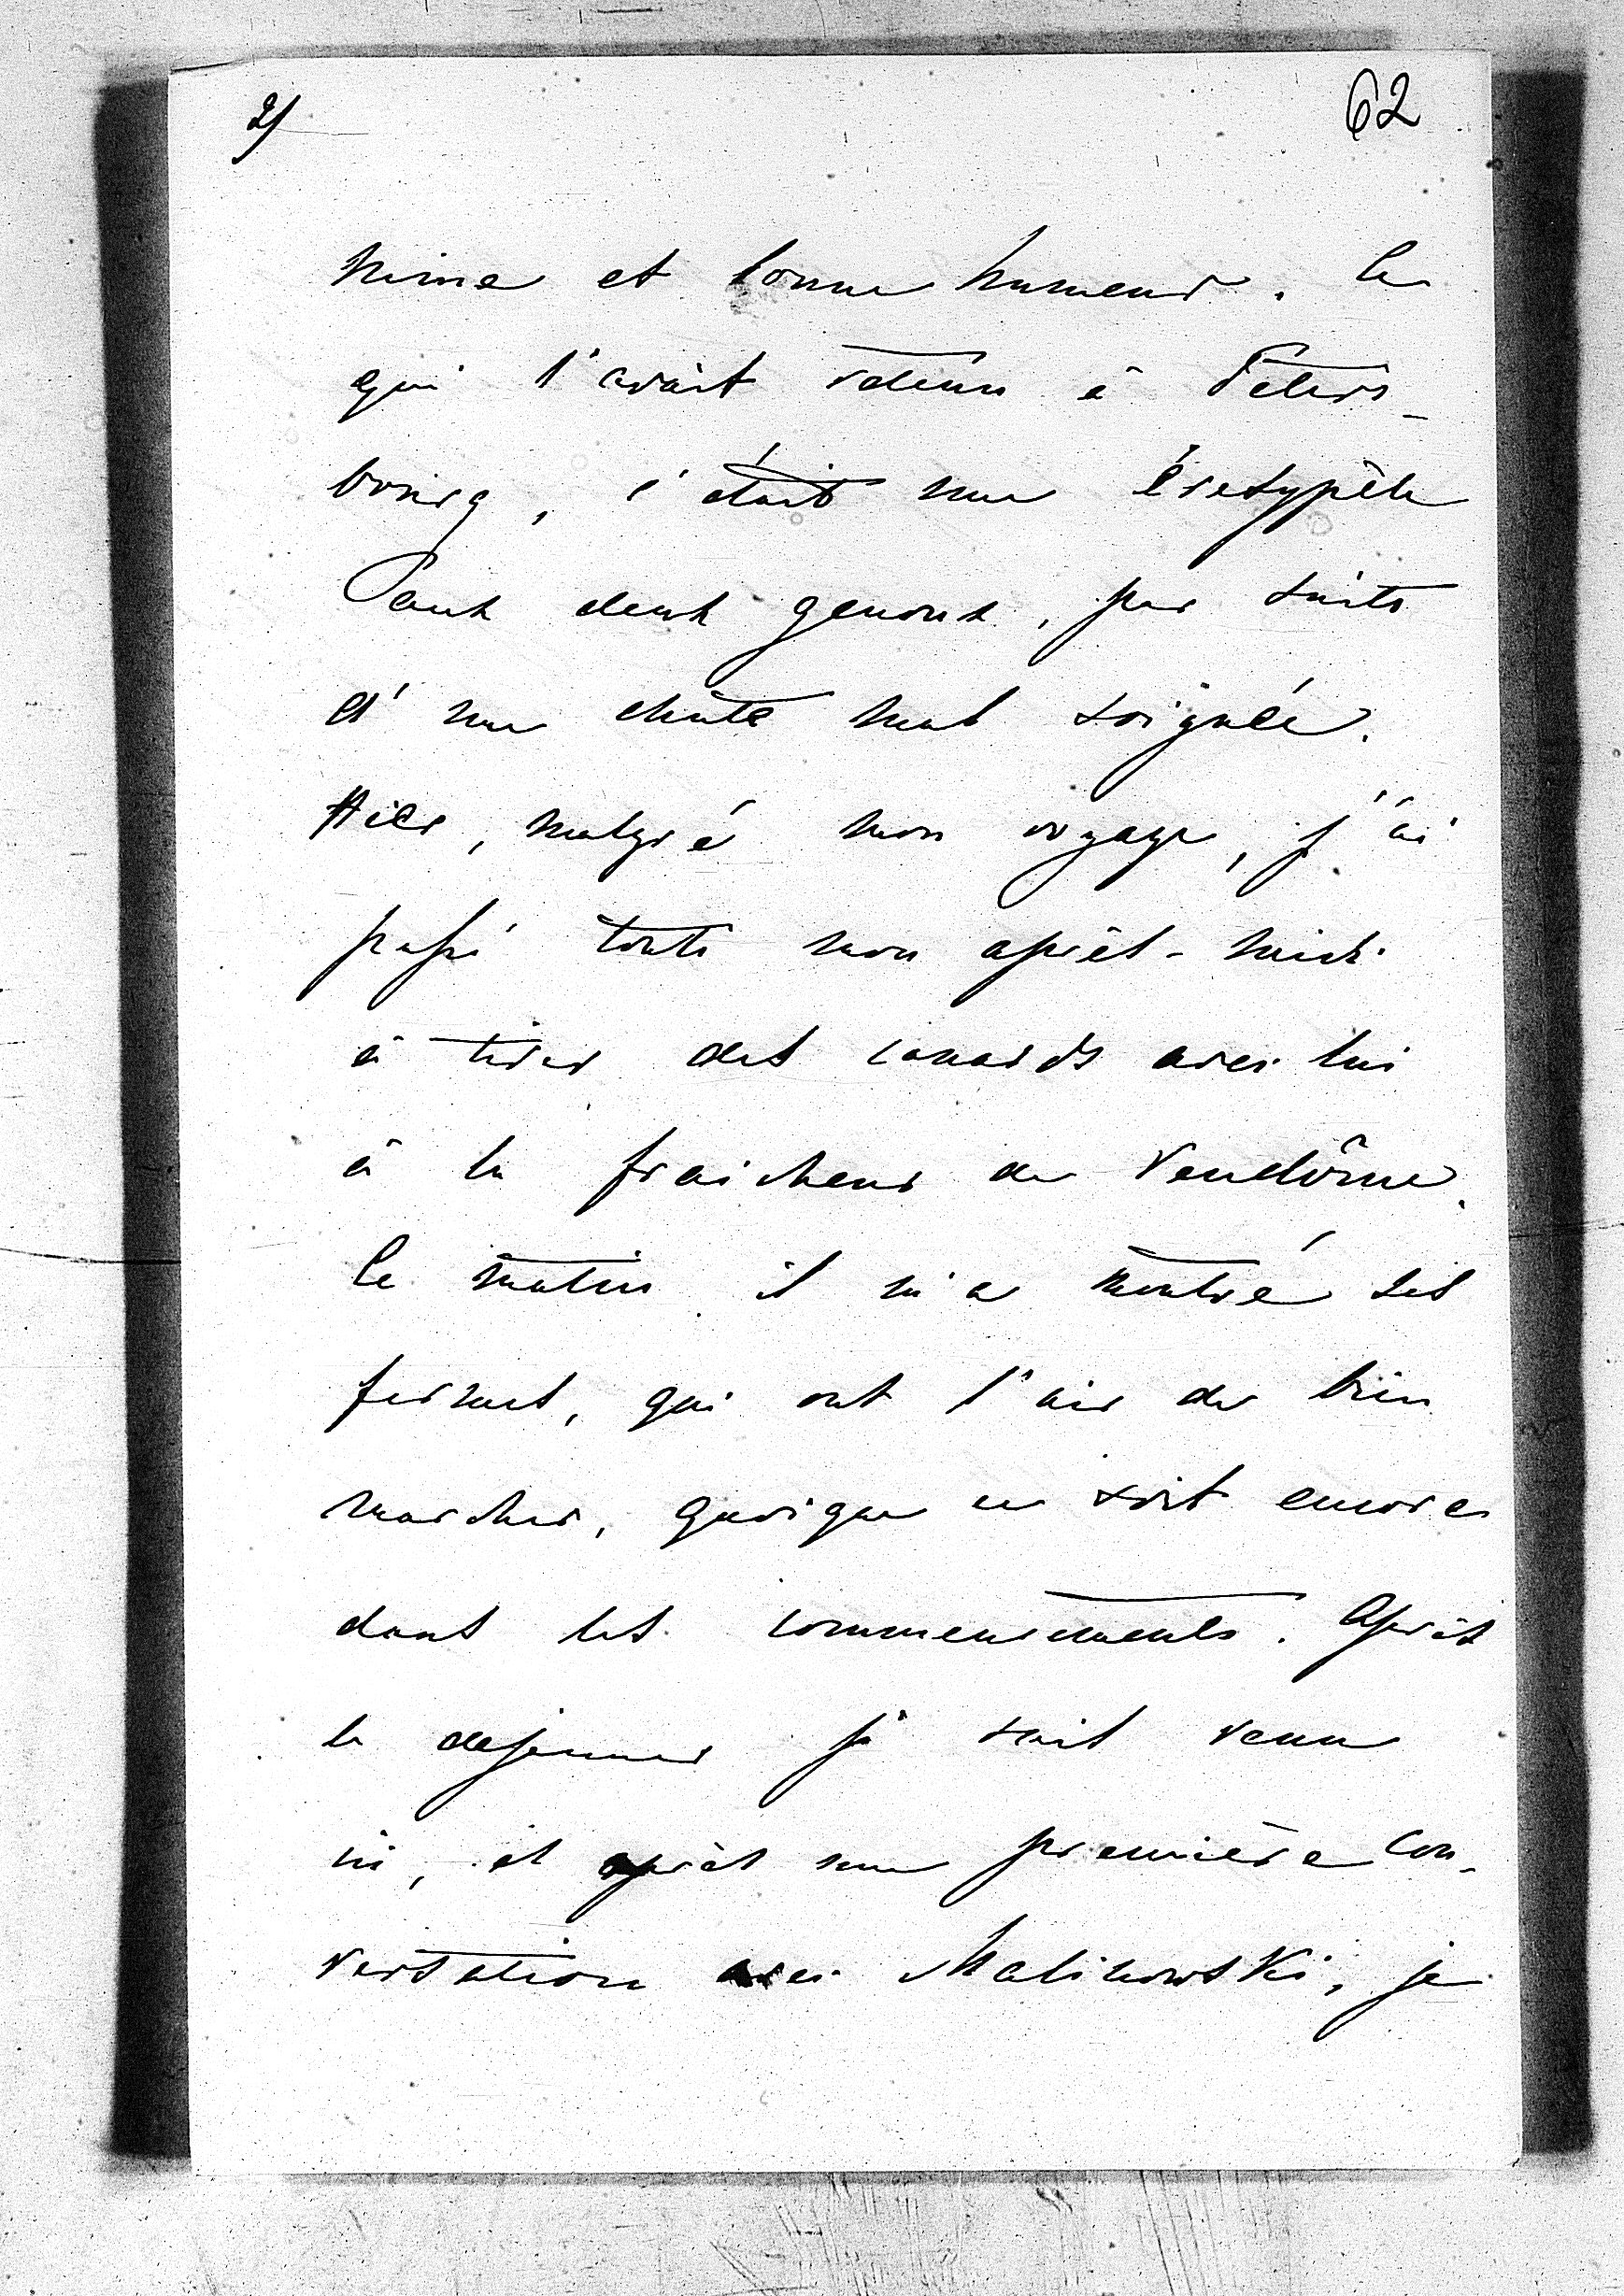 2/ 62
mine et bonne humeur. Ce
qui l'avait retenu à Péters-
bourg, c'était une érésypèle
aux deux genoux, par suite
d'une chûte mal soignée.
Hier, malgré mon voyage, j'ai
passé toute mon après-midi
à tirer des canards avec lui
à la fraicheur de Vendôme.
Le matin il m'a montré ses
fermes, qui ont l'air de bien
marcher, quoique ce soit encore
dans les commencements. Après
le dejeuner je suis venu
ici, et après une première con-
versation avec Malinowski, je